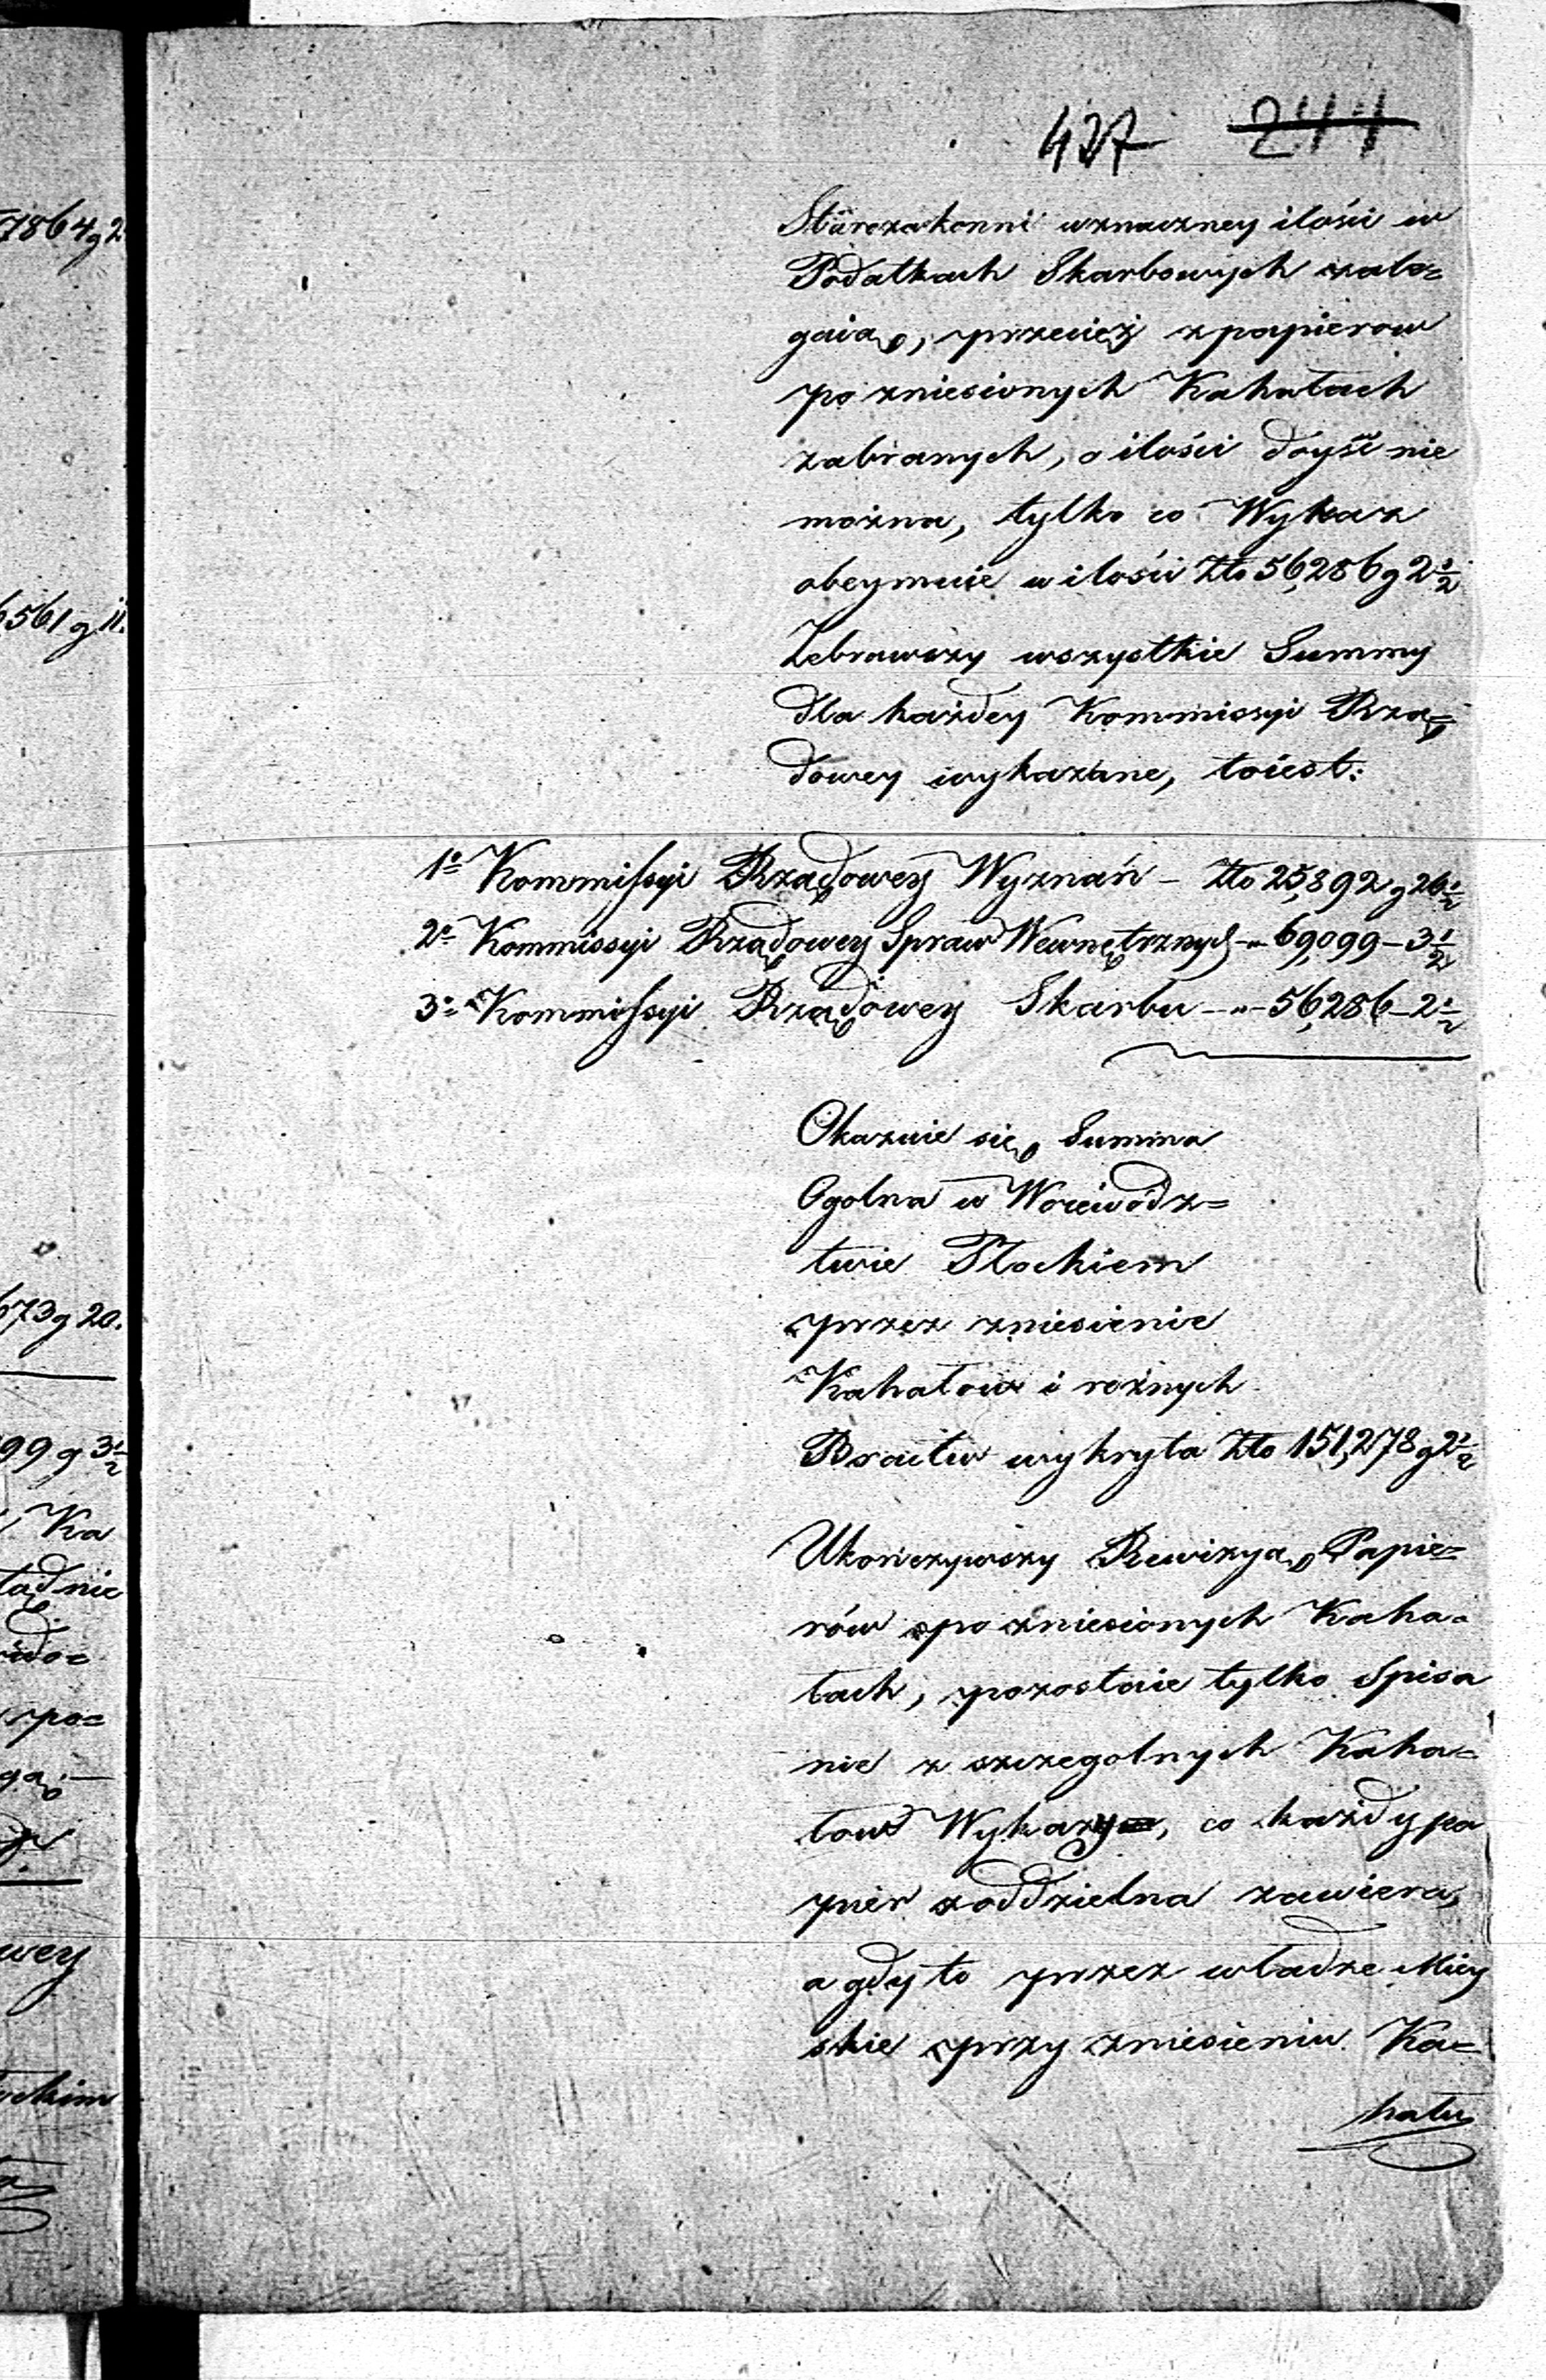 427 244
Starozakonni wznaczney ilości w
Podatkach Skarbowych zale=
gaią, przecięż z papierow
po zniesionych Kahałach
zabranych, o ilości doyść nie
można, tylko co Wykaz
obeymuie w ilości Złp 56,286 g 2½
Zebrawszy wszystkie Summy
dla każdey Kommissyi Rzą=
dowey wykazane, toiest:
1o Kommissyi Rządowey Wyznań – Złp 25,892 g 26½
2o Kommissyi Rządowey Spraw Wewnętrznych – „ 69,099 – 3½
3o Kommissyi Rządowey Skarbu – „ – 56,286 – 2½
Okazuie się Summa
Ogolna w Woiewodz=
twie Płockiem
przez zniesienie
Kahałow i rożnych
Bractw wykryta Złp 151,278 g 2½
Ukończywszy Rewizyą Papie=
rów po zniesionych Kaha=
łach, pozostaie tylko Spisa
nie z szczegolnych Kaha=
łow Wykazy, co każdy pa
pier zoddzielna zawiera,
a gdy to przez władze Miey
skie przy zniesieniu Ka=
hału
7864 g 2
6561 g 11.
673 g 20.
99 g 3½
Ka
ładnie
po=
gą.–
wey
ockim